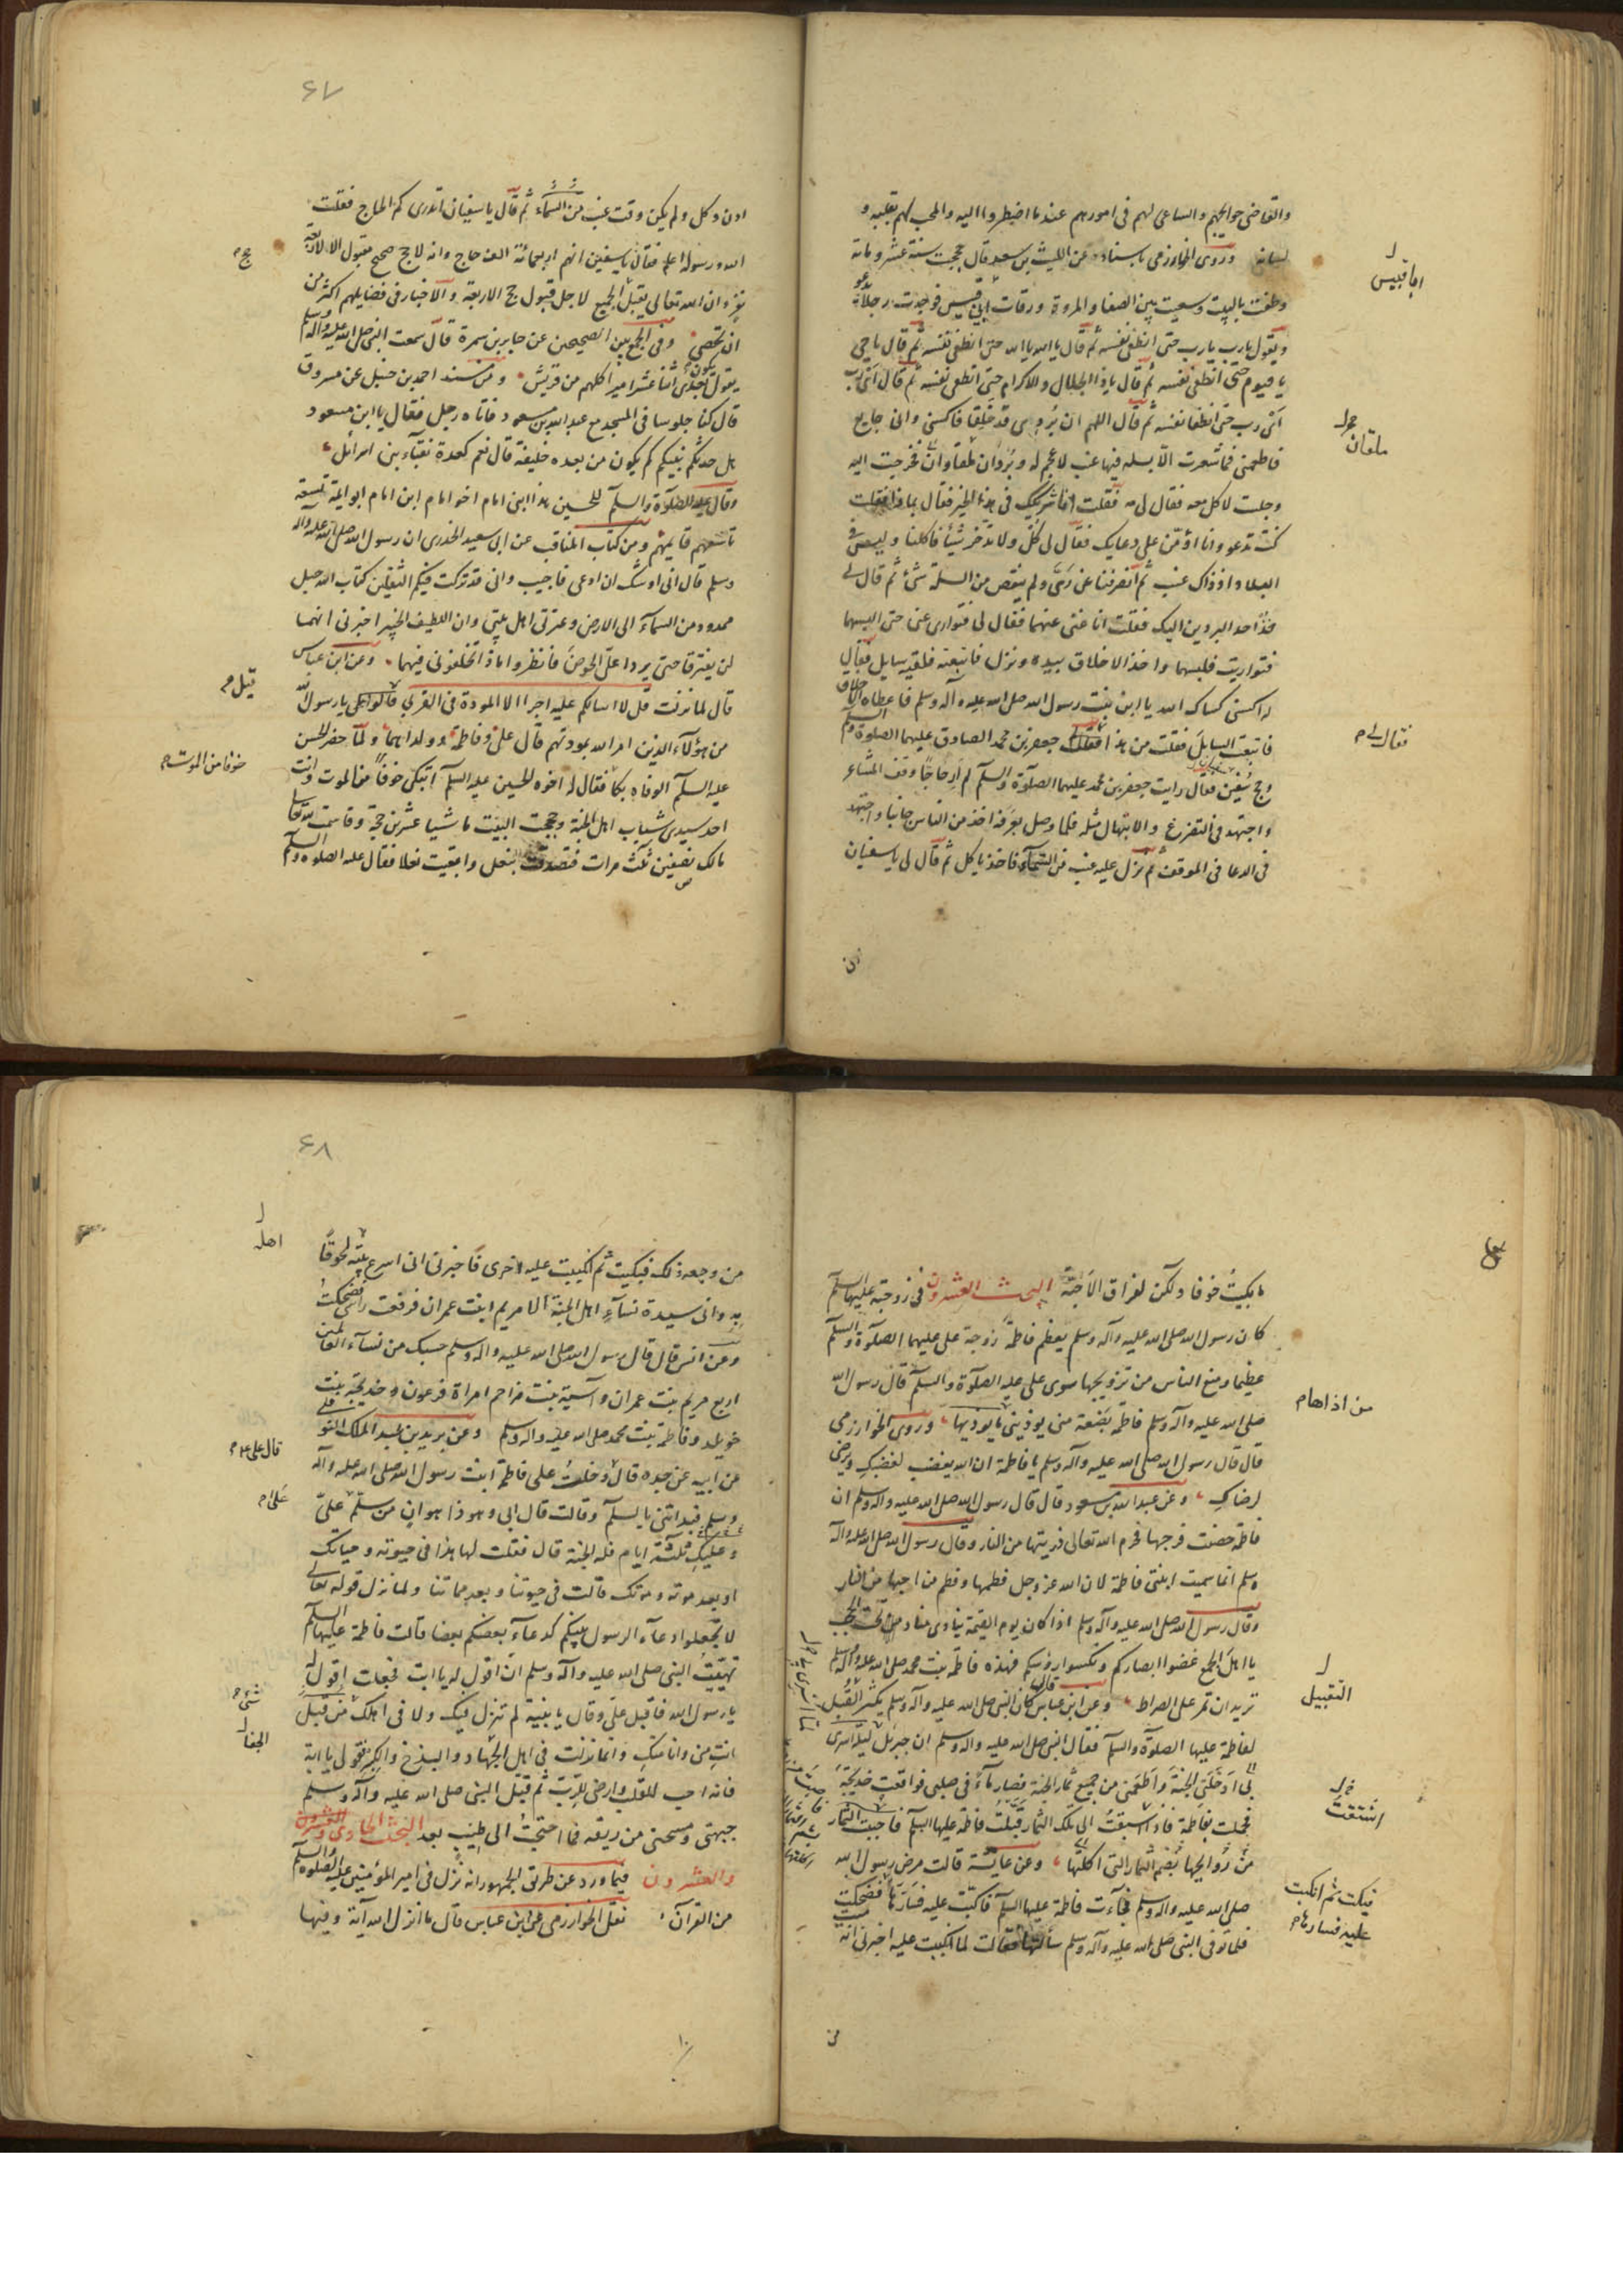 والقاضی حوایجهم والساعی لهم فی امورهم عندما اضطروا الیه والمحب لهم بقلبه و
لسانه وروی الخوارزمی باسناده عن اللیث بن سعد قال حججت سنة عشر ومایة
ابا قبیس
وطفت بالبیت وسعیت بین الصفا والمروة ورقات ابی قبیس فوجدت رجلا یدعو
ویقول یارب یارب حتی انطفی نفسه ثم قال یا الله یا الله حتی انطفی نفسه ثم قال یا حی
یا قیوم حتی انطفی نفسه ثم قال یا ذا الجلال والاکرام حتی انطفی نفسه ثم قال ای رب
ای رب حتی انطفا نفسه ثم قال اللهم ان بردی قد خلقا فاکسنی وانی جایع
ملقان
فاطعمنی فما شعرت الا بسلة فیها عنب لا عجم له وبردان ملقاوان فخرجت الیه
وجلست لاکل معه فقال لی مه فقلت انا شریکک فی هذا الخیر فقال بماذا فقلت
کنت تدعو وانا اؤمن علی دعایک فقال لی کل ولا تدخر شیئا فاکلنا ولیس فی
البلاد اذ ذاک عنب ثم انصرفنا عن ری ولم ینقص من السلة شیء ثم قال لی
خذ احد البردین الیک فقلت انا غنی عنهما فقال لی فتواری عنی حتی البسهما
فتواریت فلبسهما واخذ الاخلاق بیده ونزل فاتبعته فلقیه سایل فقال
له اکسنی کساک الله یا ابن بنت رسول الله صلی الله علیه وآله وسلم فاعطاه الاخلاق
فقال لی م
فاتبعت السایل فقلت من هذا فقال جعفر بن محمد الصادق علیهما الصلوة والسلم
وحج سفین فقال رایت جعفر بن محمد علیهما الصلوة والسلم لم ار حاجا وقف المشاعر
واجتهد فی التضرع والابتهال مثله فلما وصل بعرفة اخذ من الناس جانبا واجتهد
فی الدعا فی الموقف ثم نزل علیه عنب من السماء فاخذ یاکل ثم قال لی یا سفیان
ادن
۶۷
ادن وکل ولم یکن وقت عنب من السماء ثم قال یا سفیان اتدری کم الحاج فقلت
حج م
الله ورسوله اعلم فقال یا سفین انهم اربعمائة الف حاج وانه لا حج صحیح مقبول الا لاربعة
نفر وان الله تعالی یقبل الجمیع لاجل قبول حج الاربعة والاخبار فی فضایلهم اکثر من
ان تحصی وفی الجمع بین الصحیحین عن جابر بن سمرة قال سمعت النبی صلی الله علیه وآله وسلم
یقول یکون بعدی اثنا عشر امیرا کلهم من قریش ومن مسند احمد بن حنبل عن مسروق
قال کنا جلوسا فی المسجد مع عبد الله بن مسعود فاتاه رجل فقال یا ابن مسعود
هل حدثکم نبیکم کم یکون من بعده خلیفة قال نعم کعدة نقباء بنی اسرائل
وقال علیه الصلوة والسلم للحسین هذا ابنی امام اخو امام ابن امام ابو ائمة تسعة
تاسعهم قایمهم ومن کتاب المناقب عن ابی سعید الخدری ان رسول الله صلی الله علیه وآله
وسلم قال انی اوشک ان ادعی فاجیب وانی قد ترکت فیکم الثقلین کتاب الله حبل
ممدود من السماء الی الارض وعترتی اهل بیتی وان اللطیف الخبیر اخبرنی انهما
لن یفترقا حتی یردا علی الحوض فانظروا ماذا تخلفونی فیهما وعن ابن عباس
قیل م
قال لما نزلت قل لا اسالکم علیه اجرا الا المودة فی القربی قالوا یا رسول الله
من هؤلاء الذین امر الله بمودتهم قال علی وفاطمة وولداهما ولما حضر الحسن
خوفا من الموت م
علیه السلم الوفاة بکا فقال له اخوه الحسین علیه السلم اتبکی خوفا من الموت وانت
احد سیدی شباب اهل الجنة وحججت البیت ماشیا عشرین حجة وقاسمت الله تعا
مالک نصفین ثلث مرات فتصدقت بنعل وابقیت نعلا فقال علیه الصلوة والسلم
ما بکیت خوفا ولکن لفراق الاحبة البحث العشرون فی زوجته علیها السلم
کان رسول الله صلی الله علیه وآله وسلم یعظم فاطمة زوجة علی علیهما الصلوة والسلم
عظیما ومنع الناس من تزویجها سوی علی علیه الصلوة والسلم قال رسول الله
من اذاها م
صلی الله علیه وآله وسلم فاطمة بضعة منی یوذینی ما یوذیها وروی الخوارزمی
قال قال رسول الله صلی الله علیه وآله وسلم یا فاطمة ان الله یغضب لغضبک ویرضی
لرضاک وعن عبد الله بن مسعود قال قال رسول الله صلی الله علیه وآله وسلم ان
فاطمة حصنت فرجها فحرم الله تعالی ذریتها من النار وقال رسول الله صلی الله علیه وآله
وسلم انما سمیت ابنتی فاطمة لان الله عز وجل فطمها وفطم من احبها من النار
وقال رسول الله صلی الله علیه وآله وسلم اذا کان یوم القیمة ینادی مناد من تحت الحجب
یا اهل الجمع غضوا ابصارکم ونکسوا رؤسکم فهذه فاطمة بنت محمد صلی الله علیه وآله وسلم
التقبیل
ترید ان تمر علی الصراط وعن ابن عباس قال کان النبی صلی الله علیه وآله وسلم یکثر القبل
لفاطمة علیها الصلوة والسلم فقال النبی صلی الله علیه وآله وسلم ان جبرئل لیلة اسری
بی ادخلنی الجنة واطعمنی من جمیع ثمار الجنة فصار ماء فی صلبی فواقعت خدیجة
اشتقت
فحملت بفاطمة فاذا اشتقت الی تلک الثمار قبلت فاطمة علیها السلم فاصبت الثمار
من روایحها بضم الثمار التی اکلتها وعن عایشة قالت مرض رسول الله
فبکت ثم انکبت
علیه فسارها م
صلی الله علیه وآله وسلم فجاءت فاطمة علیها السلم فاکبت علیه فسارها فضحکت
فلما توفی النبی صلی الله علیه وآله وسلم سألتها فقالت لما اکببت علیه اخبرنی انه
من
۶۸
اهله
من وجعه ذلک فبکیت ثم اکببت علیه اخری فاخبرنی انی اسرع بیته لحوقا
به وانی سیدة نساء اهل الجنة الا مریم ابنت عمران فرفعت راسی فضحکت
وعن انس قال قال رسول الله صلی الله علیه وآله وسلم حسبک من نساء العالمین
اربع مریم بنت عمران وآسیة بنت مزاحم امراة فرعون وخدیجة بنت
خویلد وفاطمة بنت محمد صلی الله علیه وآله وسلم وعن یزید بن عبد الملک النوفلی
قال علی م
عن ابیه عن جده قال دخلت علی فاطمة ابنت رسول الله صلی الله علیه وآله
وسلم فبداتنی بالسلم وقالت قال ابی وهو ذا هو ان من سلم علی
وعلیک ثلثة ایام فله الجنة قال فقلت لها هذا فی حیوته وحیاتک
او بعد موته وموتک قالت فی حیوتنا وبعد مماتنا ولما نزل قوله تعالی
لا تجعلوا دعاء الرسول بینکم کدعاء بعضکم بعضا قالت فاطمة علیها السلم
تهیبت النبی صلی الله علیه وآله وسلم ان اقول له یا ابت فجعلت اقول له
یا رسول الله فاقبل علی وقال یا بنیة لم تنزل فیک ولا فی اهلک من قبل
الجفا
انت منی وانا منک وانما نزلت فی اهل الجهاد والبذخ والکبر فقولی یا ابة
فانه احب للقلب وارضی للرب ثم قبل النبی صلی الله علیه وآله وسلم
جبهتی ومسحنی من ریقه فما احتجت الی طیب بعد البحث الحادی والعشرون
والعشرون فیما ورد عن طریق الجمهور انه نزل فی امیر المؤمنین علیه الصلوة والسلم
من القرآن نقل الخوارزمی عن ابن عباس قال ما انزل الله آیة وفیها